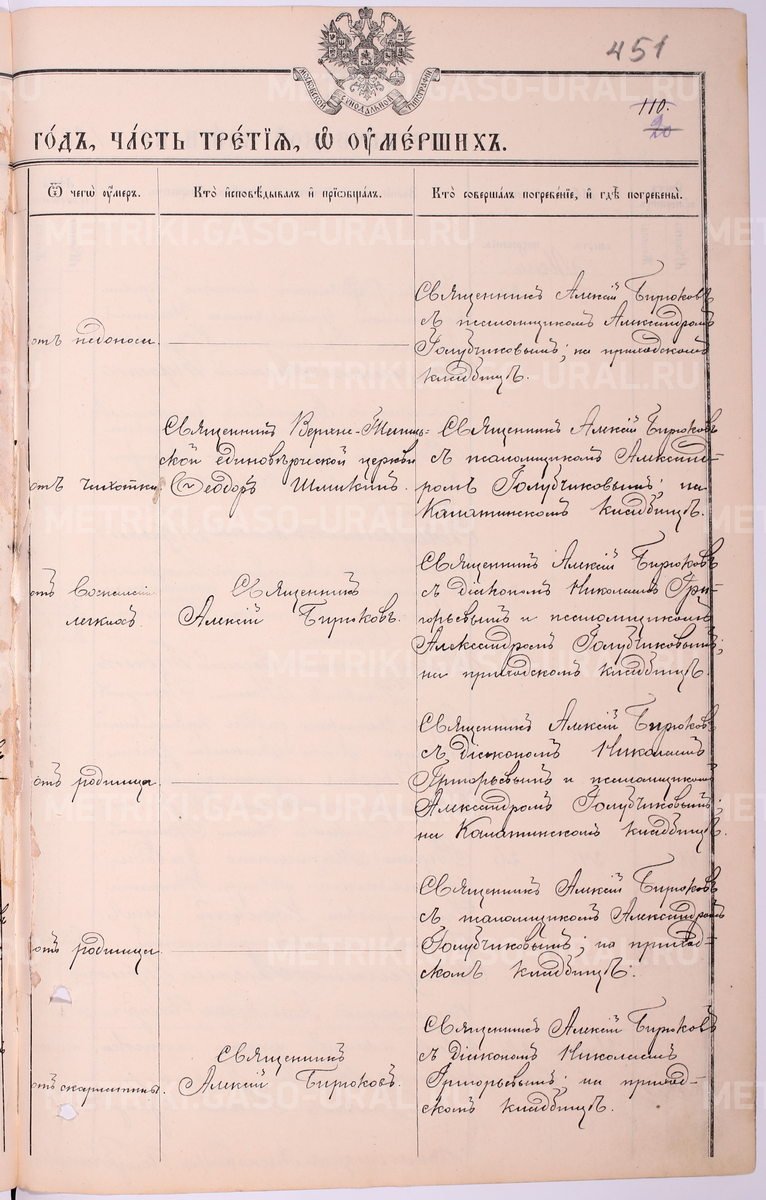 451
МОСКОВСКОЙ СѴНОДАЛЬНОЙ ТИПОГРАФІИ
110.
20
ГО́ДЪ, ЧА́СТЬ ТРЕ́ТІѦ, Ѡ҆ ОУ҆МЕ́РШИХЪ.
Ѿ чегѡ̀ оу҆́меръ.
Кто̀ и҆сповѣ́дывалъ и҆ прїѡбща́лъ.
Кто̀ соверша́лъ погребе́нїе, и҆ гдѣ̀ погребены̀.
отъ недоноси.
Священникъ Алексій Бирюковъ
съ псаломщикомъ Александромъ
Голубчиковымъ; на приходскомъ
кладбищѣ.
отъ чахотки.
Священникъ Верхне-
ской единовѣрческой церкви
Ѳеодоръ
Священникъ Алексій Бирюковъ
съ псаломщикомъ Александ-
ромъ Голубчиковымъ; на
Калатинскомъ кладбищѣ.
отъ воспаленія
легкихъ.
Священникъ
Алексій Бирюковъ.
Священникъ Алексій Бирюковъ
съ Діакономъ Николаемъ Гри-
горьевымъ и псаломщикомъ
Александромъ Голубчиковымъ;
на приходскомъ кладбищѣ.
отъ родимца.
Священникъ Алексій Бирюковъ
съ Діакономъ Николаемъ
Григорьевымъ и псаломщикомъ
Александромъ Голубчиковымъ;
на Калатинскомъ кладбищѣ.
отъ родимца.
Священникъ Алексій Бирюковъ
съ Александромъ
Голубчиковымъ; на приход-
скомъ кладбищѣ.
отъ скарлатины.
Священникъ
Алексій Бирюковъ.
Священникъ Алексій Бирюковъ
съ Діакономъ Николаемъ
Григорьевымъ; на приход-
скомъ кладбищѣ.
METRIKI.GASO-URAL.RU